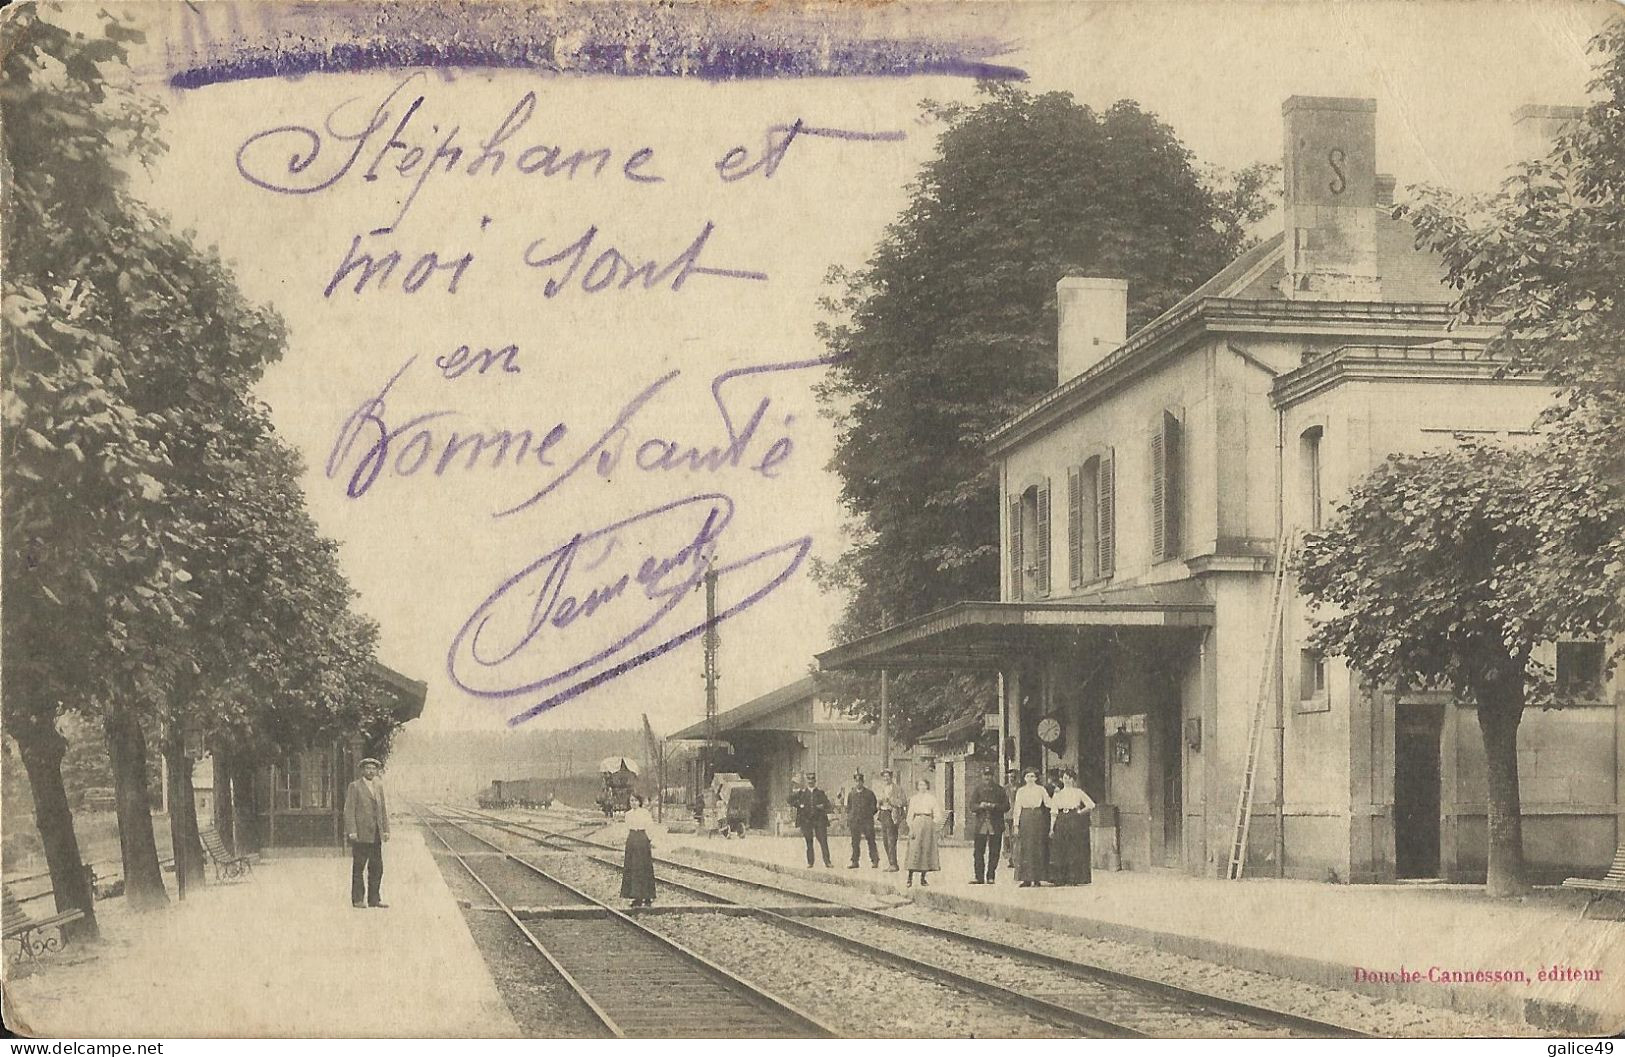 Stéphane et
moi sont
en
Bonne santé
S
Douche-Cannesson, éditeur
www.delcampe.net
galice49